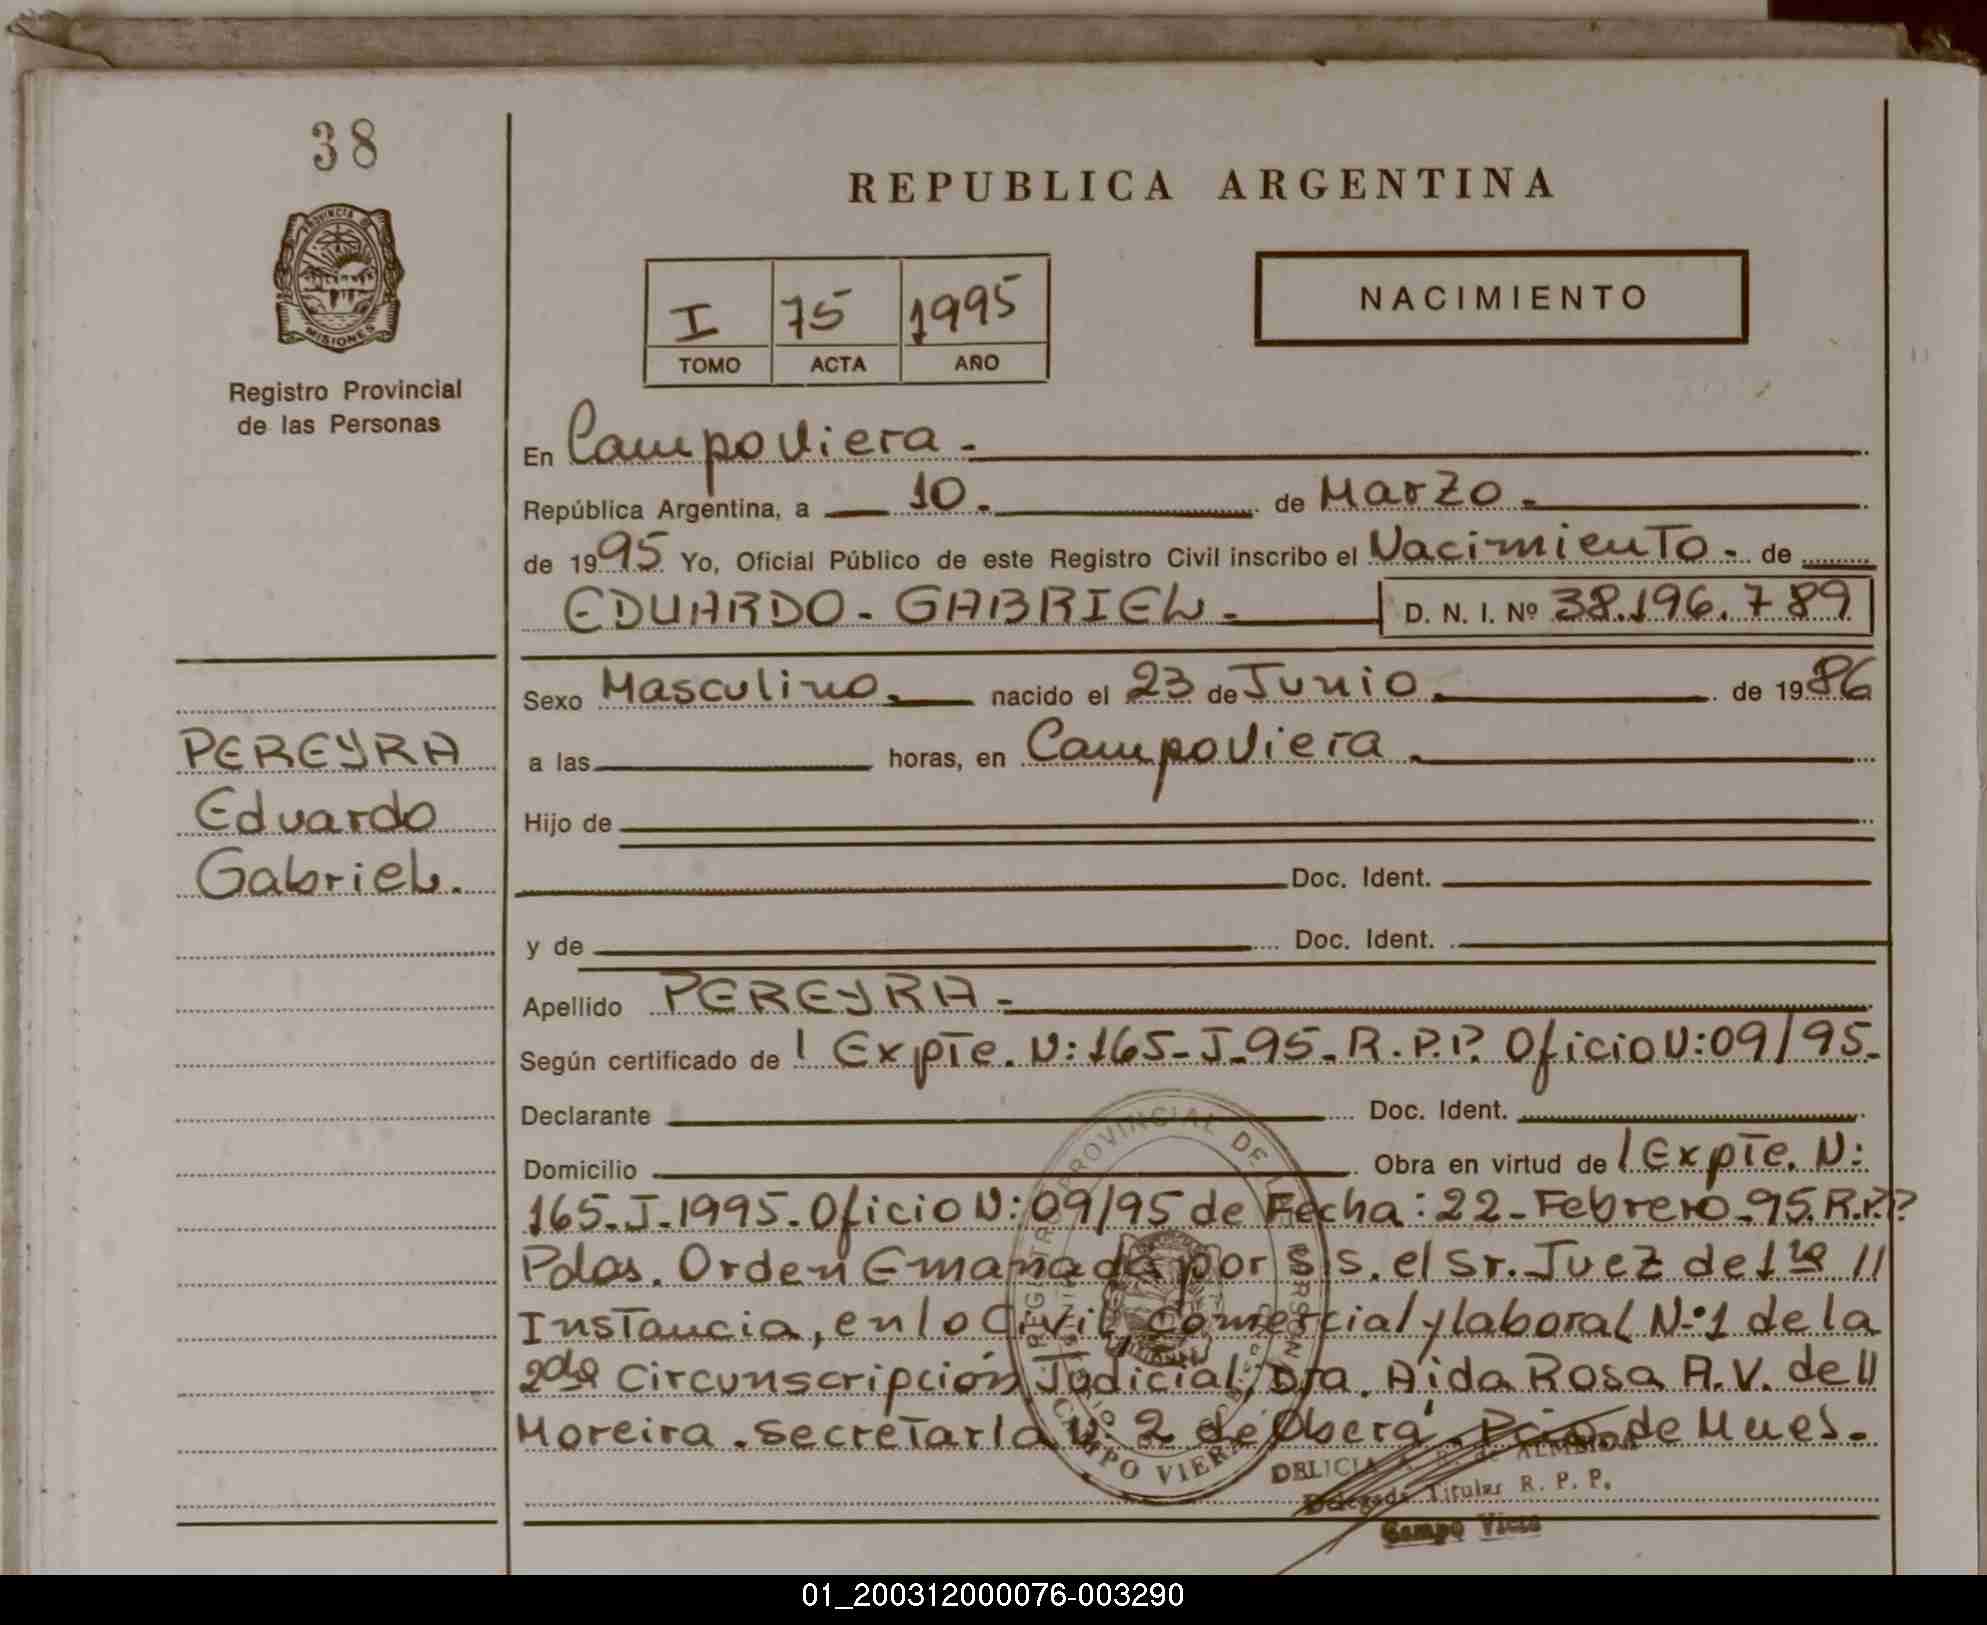 38
PROVINCIA DE
MISIONES
Registro Provincial
de las Personas
REPUBLICA ARGENTINA
NACIMIENTO
I 75 1995
TOMO ACTA AÑO
En Campo Viera.
República Argentina, a 10. de Marzo.
de 1995 Yo, Oficial Público de este Registro Civil inscribo el Nacimiento. de
EDUARDO - GABRIEL. D. N. I. Nº 38.196.789
Sexo Masculino. nacido el 23 de Junio. de 1986
a las horas, en Campo Viera.
Hijo de
Doc. Ident.
y de Doc. Ident.
Apellido PEREYRA.
Según certificado de / Expte. N: 165-J-95. R.P.P. Oficio N: 09/95.
Declarante Doc. Ident.
Domicilio Obra en virtud de / Expte. N:
165-J-1995. Oficio N: 09/95 de Fecha: 22-Febrero-95. R.P.P
Pdas. Orden Emanada por S.S. el Sr. Juez de 1ra //
Instancia, en lo Civil, Comercial y laboral N°1 de la
2da Circunscripción Judicial, Dra. Aida Rosa A.V. de //
Moreira. Secretaría N: 2 de Oberá. Pcia. de Mnes.
PEREYRA
Eduardo
Gabriel.
REGISTRO PROVINCIAL DE LAS PERSONAS
CAMPO VIERA
DELICIA A. R. de ALMEIDA
Delegada Titular R. P. P.
Campo Viera
01_200312000076-003290